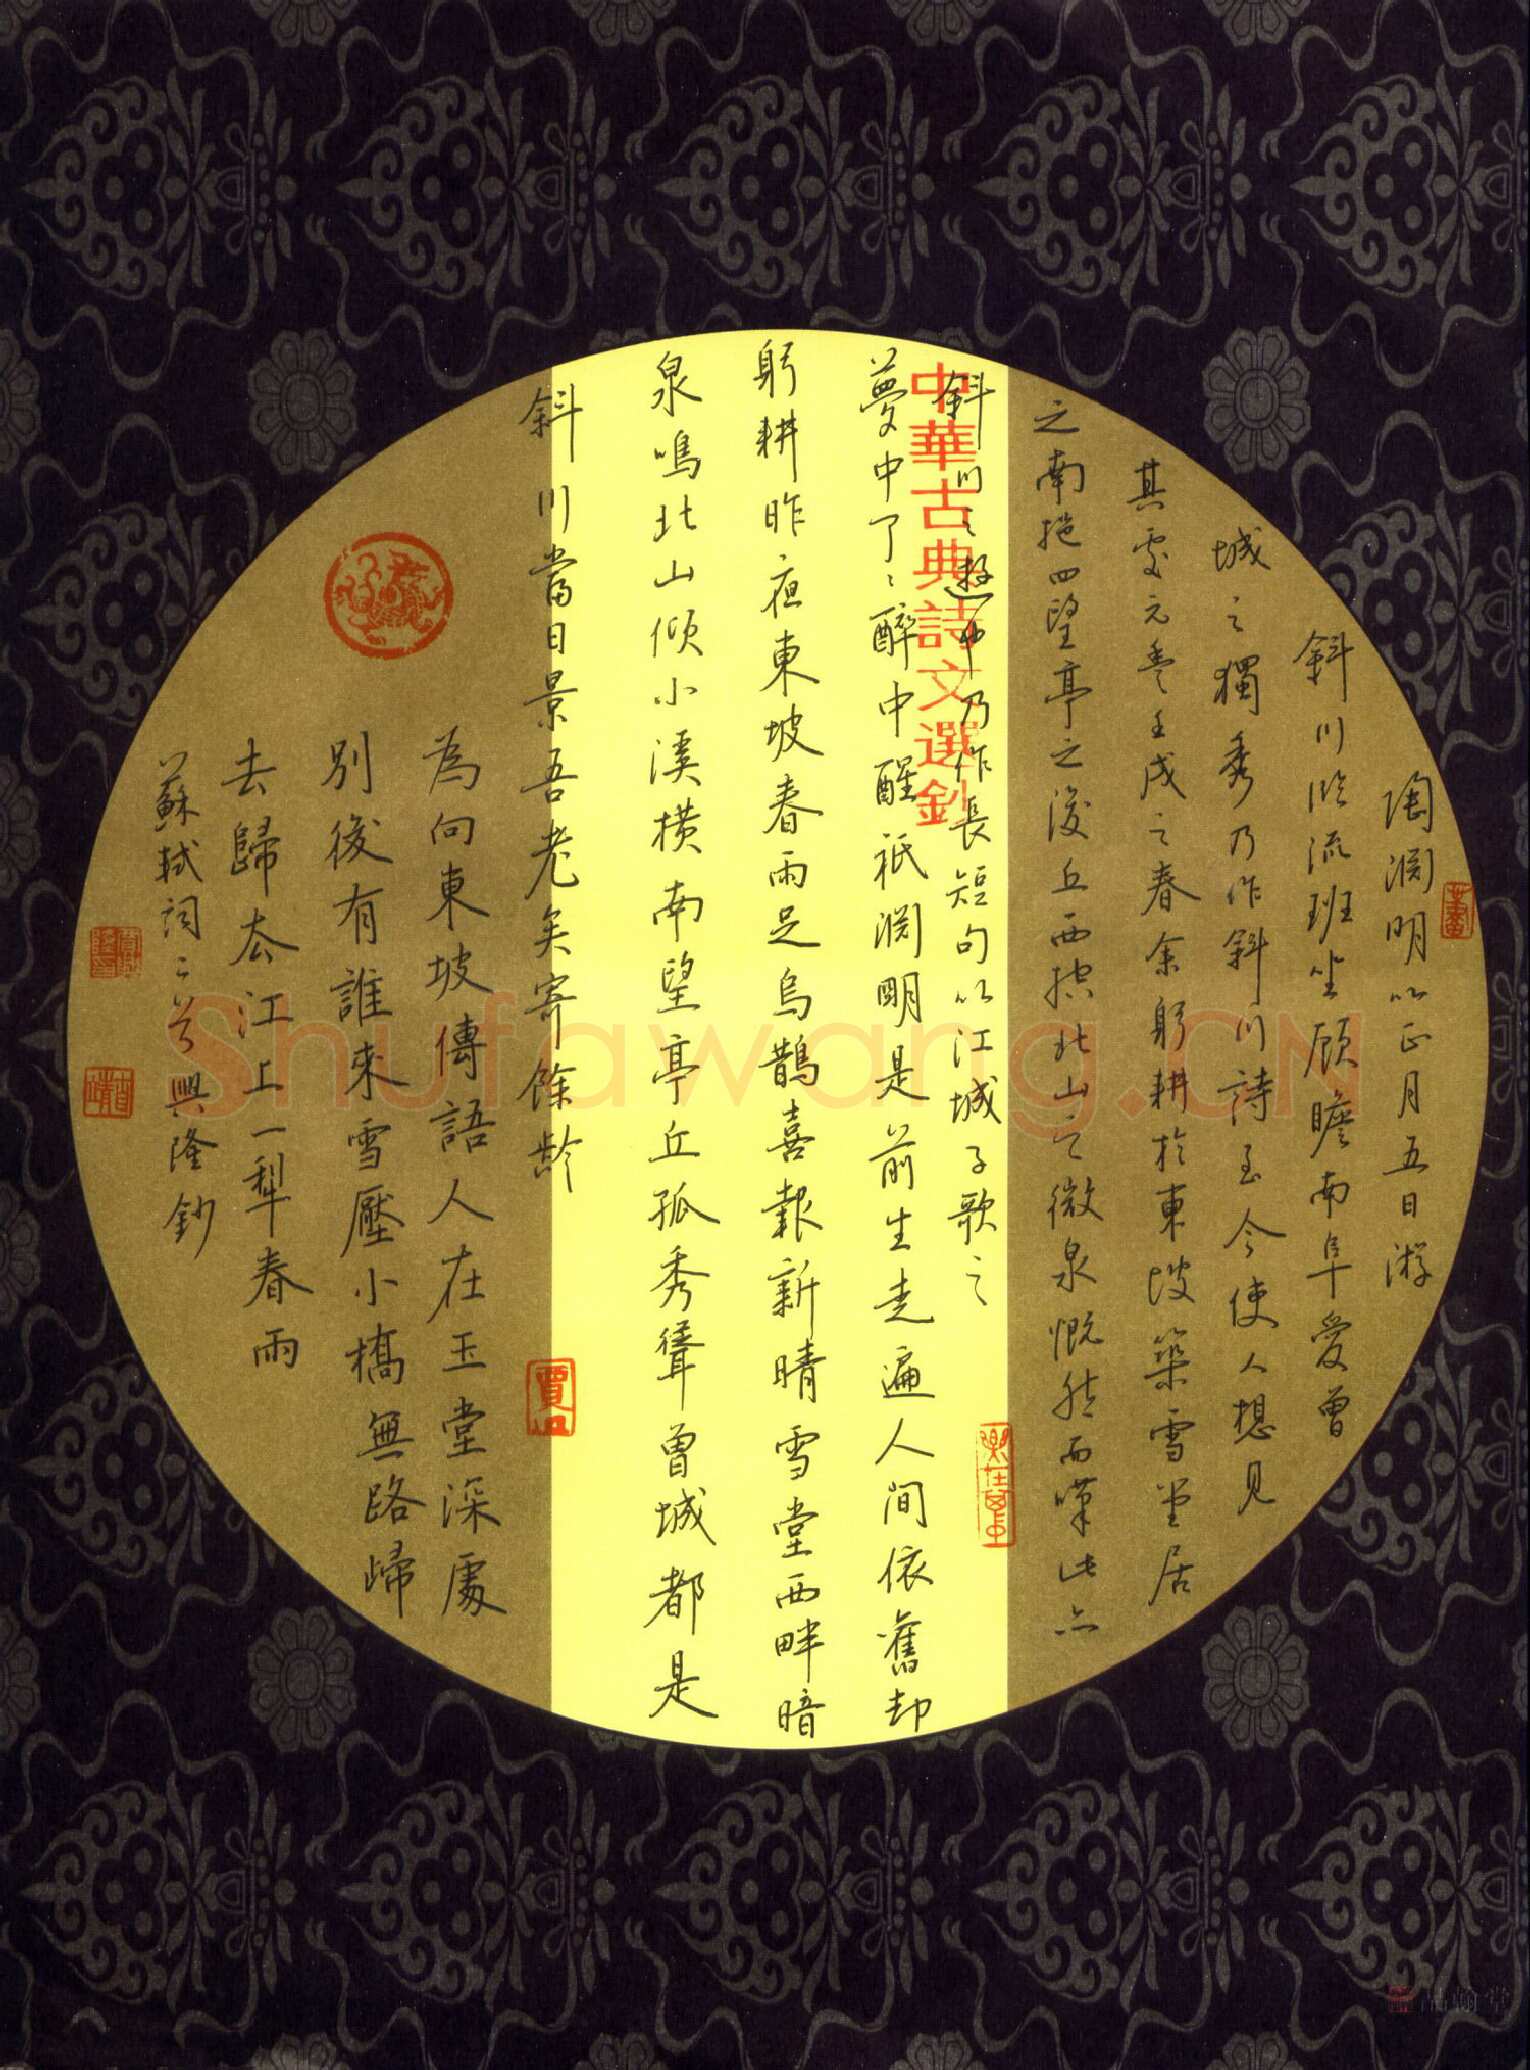 陶淵明以正月五日游
斜川臨流班坐顧瞻南阜愛曾
城之獨秀乃作斜川詩至今使人想見
其處元豐壬戌之春余躬耕於東坡築雪堂居
之南挹四望亭之後丘西控北山之微泉慨然而嘆此亦
斜川之遊也乃作長短句以江城子歌之
夢中了了醉中醒祇淵明是前生走遍人間依舊却
躬耕昨夜東坡春雨足烏鵲喜報新晴雪堂西畔暗
泉鳴北山傾小溪橫南望亭丘孤秀聳曾城都是
斜川當日景吾老矣寄餘齡
為向東坡傳語人在玉堂深處
別後有誰來雪壓小橋無路歸
去歸去江上一犁春雨
蘇軾詞二首興隆鈔
中華古典詩文選鈔
Shufawang.CN
品翰堂